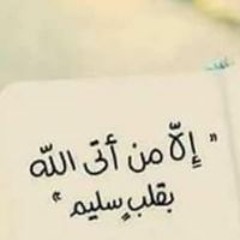 " إِلّا من أتى الله
بقلبٍ سليم "